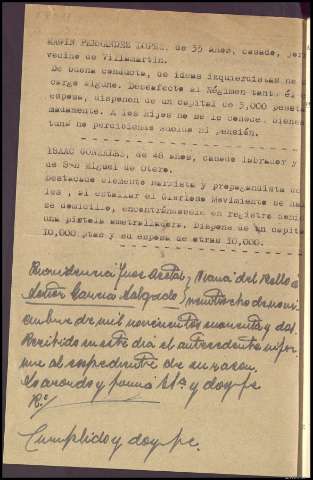 RAMON FERNANDEZ LOPEZ, de 39 años, casado,
vecino de Villamartin.
De buena conducta, de ideas izquierdistas no
cargo alguno. Desafecto al Régimen tanto él
esposa, disponen de un capital de 3,000 peseta
madamente. A los hijos no se le conoce bienes
tuna no percibiendo sueldo ni pensión.
ISAAC GONZALEZ, de 48 años, casado labrador y
de San Miguel de Otero.
Destacado elemento marxista y propagandista
, al estallar el Glorioso Movimiento se
su domicilio, encontrándosele en registro
una pistola ametralladora. Dispone de un capita
10,000 ptas y su esposa de otras 10,000.
Providencia Juez Acctal, Viana del Bollo a
Señor García Salgado, veintiocho de novi
embre de mil novecientos cuarenta y dos.
Recibido en este día el antecedente infor
me al expediente de su razon.
Lo acordo y firma Sª y doy fe
Cumplido y doy fe.